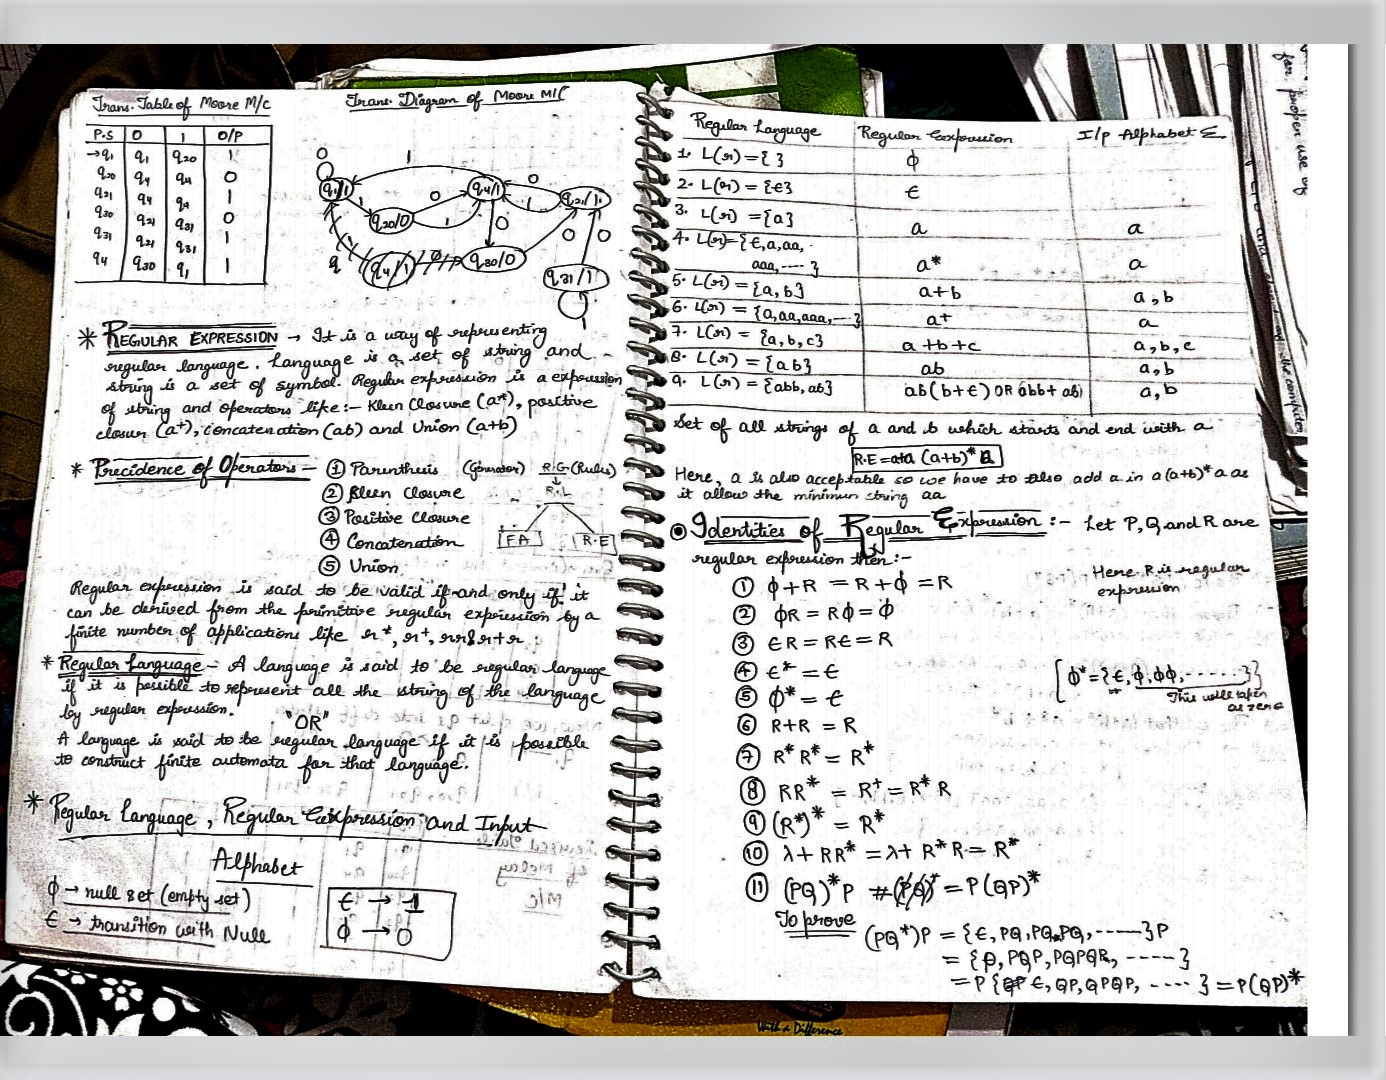 Trans. Table of Moore M/c
P.S 0 1 O/P
→q1 q1 q20 1
q20 q4 q4 0
q21 q4 q4 1
q30 q21 q31 0
q31 q21 q31 1
q4 q30 q1 1
Trans. Diagram of Moore M/C
0
1
q1/1
1
q20/0
0
1
q4/1
0
1
q21/1
0
q30/0
0
0
q31/1
1
q4/1
q
* REGULAR EXPRESSION → It is a way of representing
regular language. Language is a set of string and
string is a set of symbol. Regular expression is a expression
of string and operators like:- Kleen Closure (a*), positive
closur (a+), concatenation (ab) and Union (a+b)
* Precidence of Operators —
① Parenthesis
② Kleen Closure
③ Positive Closure
④ Concatenation
⑤ Union
(Generator) R.G (Rules)
R.L
F.A R.E
Regular expression is said to be valid if and only if it
can be derived from the primitive regular expression by a
finite number of applications like r*, r+, rr & r+r.
* Regular Language - A language is said to be regular language
if it is possible to represent all the string of the language
by regular expression.
"OR"
A language is said to be regular language if it is possible
to construct finite automata for that language.
* Regular Language, Regular Expression and Input
Alphabet
ϕ → null set (empty set)
ϵ → transition with Null
ϵ → 1
ϕ → 0
Regular Language Regular Expression I/p Alphabet Σ
1. L(r) = { } ϕ
2. L(r) = {ϵ} ϵ
3. L(r) = {a} a a
4. L(r) = {ϵ, a, aa,
aaa, ---- } a* a
5. L(r) = {a, b} a+b a, b
6. L(r) = {a, aa, aaa, ---} a+ a
7. L(r) = {a, b, c} a+b+c a, b, c
8. L(r) = {ab} ab a, b
9. L(r) = {abb, ab} ab(b+ϵ) OR abb+ab a, b
Set of all strings of a and b which starts and end with a
R.E = a (a+b)* a
Here, a is also acceptable so we have to also add a in a(a+b)*a as
it allow the minimum string aa
Identities of Regular Expression :- Let P, Q and R are
regular expression then:-
Here R is regular
expression
① ϕ+R = R+ϕ = R
② ϕR = Rϕ = ϕ
③ ϵR = Rϵ = R
④ ϵ* = ϵ
⑤ ϕ* = ϵ
[ϕ* = {ϵ, ϕ, ϕϕ, ------}]
This will taken
as zero
⑥ R+R = R
⑦ R*R* = R*
⑧ RR* = R+ = R*R
⑨ (R*)* = R*
⑩ λ+RR* = λ+R*R = R*
⑪ (PQ)*P = P(QP)*
To prove
(PQ*)P = {ϵ, PQ, PQPQ, -----}P
= {P, PQP, PQPQP, ---- }
= P {ϵ, QP, QPQP, ---- } = P(QP)*
for proper use of
the computer
With a Difference